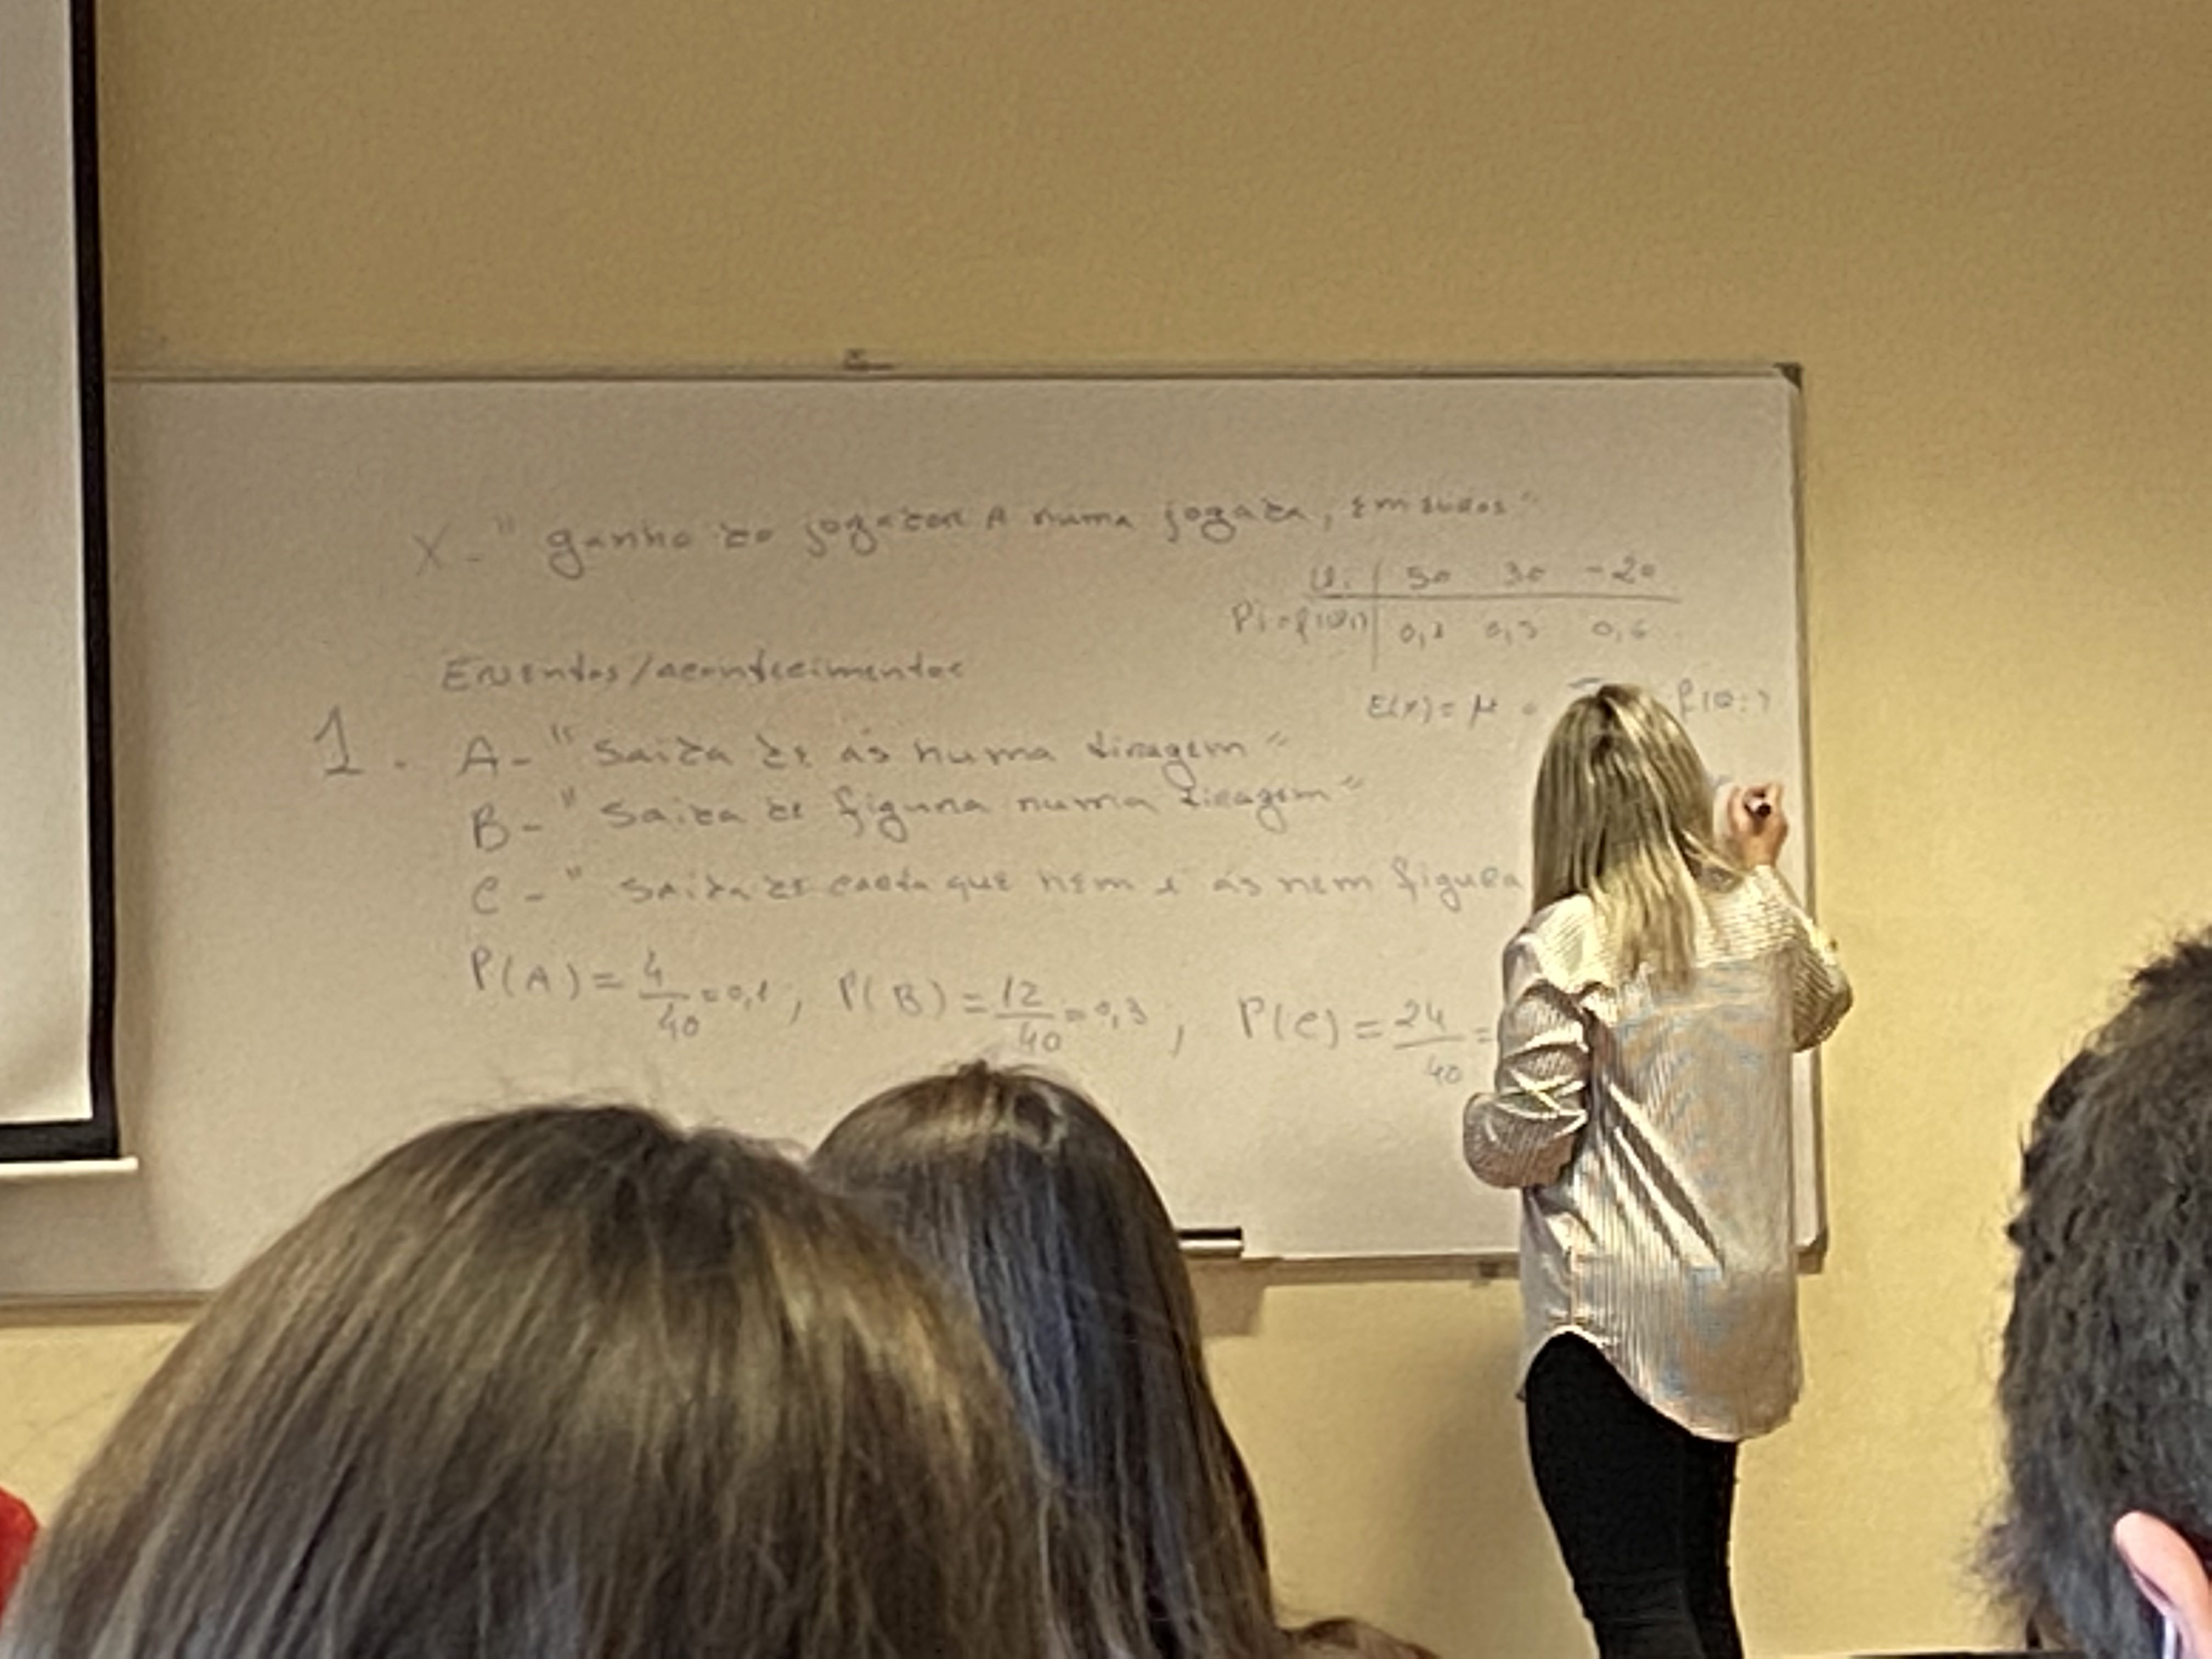 X - " ganho do jogador A numa jogada, em euros "
xi 50 30 -20
Pi = f(xi) 0,1 0,3 0,6
Eventos/acontecimentos
E(X) = μ = f(xi)
1. A - " Saida de ás numa tiragem "
B - " Saida de figura numa tiragem "
C - " Saida de carta que nem é ás nem figura
P(A) = 4/40 = 0,1 , P(B) = 12/40 = 0,3 , P(C) = 24/40 =